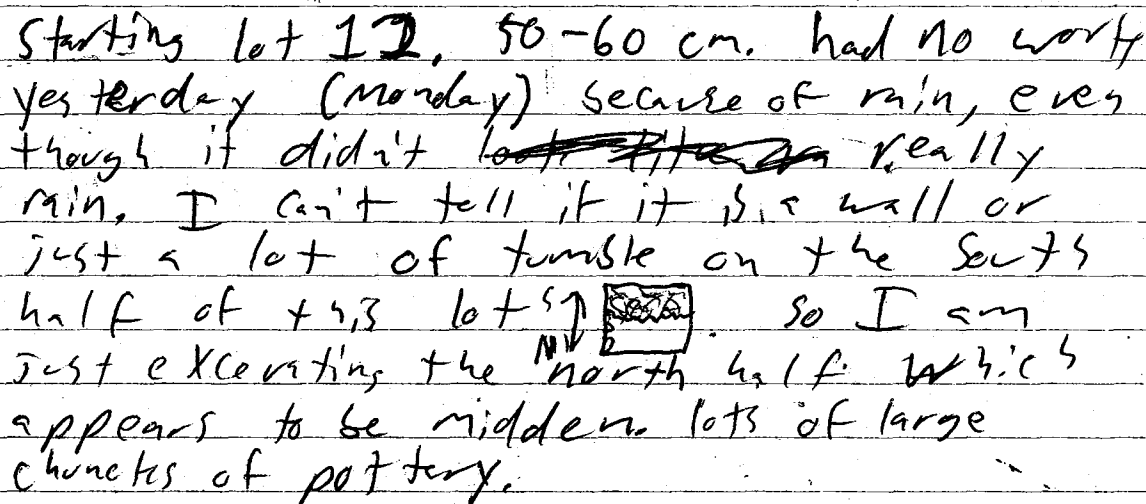 Starting lot 12, 50-60 cm. had no work
yesterday (Monday) because of rain, even
though it didn't really
rain. I can't tell if it is a wall or
just a lot of tumble on the South
half of this lot S
N . So I am
just excevating the north half which
appears to be midden. lots of large
chuncks of pottery.